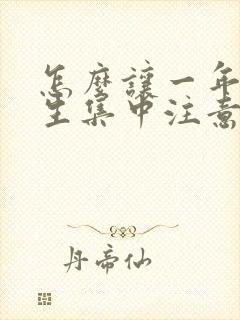 怎麼讓一年
生集中注意
丹帝仙